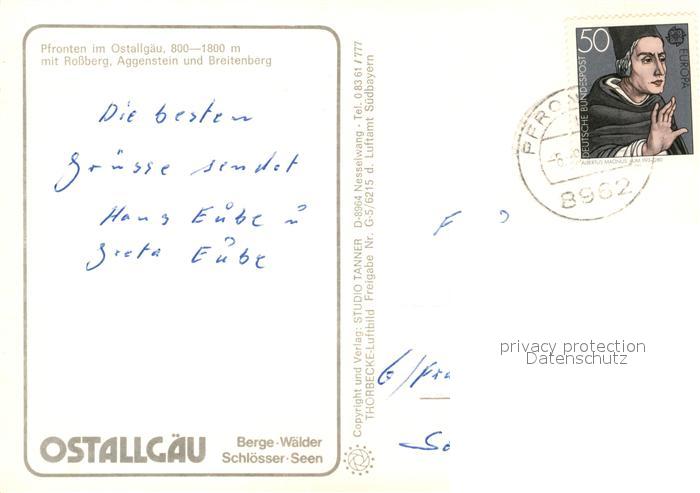 Pfronten im Ostallgäu, 800—1800 m
mit Roßberg, Aggenstein und Breitenberg
Die besten
Grüsse sendet
Hans
Greta
OSTALLGÄU
Berge·Wälder
Schlösser·Seen
Copyright und Verlag: STUDIO TANNER D-8964 Nesselwang · Tel. 0 83 61 / 777
THORBECKE-Luftbild Freigabe Nr. G-5/6215 d. Luftamt Südbayern
50
DEUTSCHE BUNDESPOST
EUROPA
ALBERTUS MAGNUS
8962
privacy protection
Datenschutz